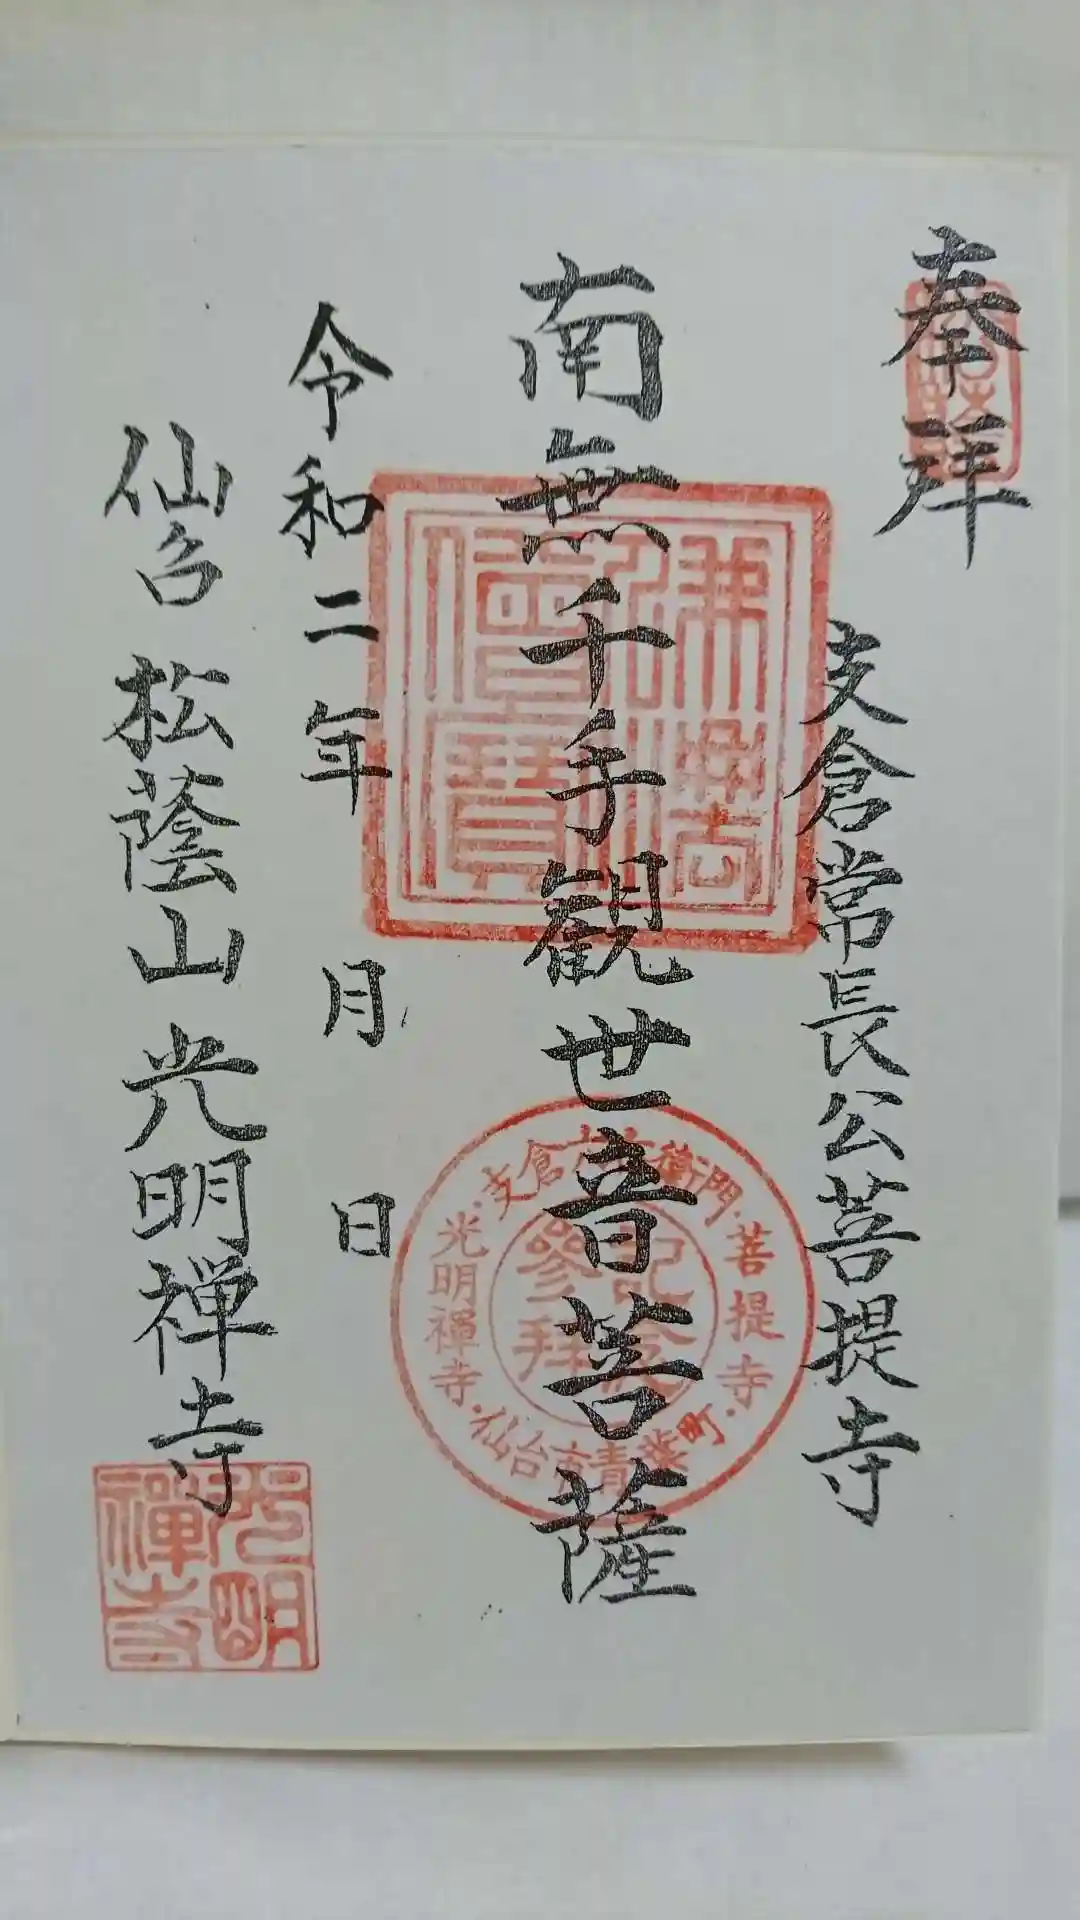 奉拝
支倉常長公菩提寺
南無千手観世音菩薩
令和二年 月 日
仙台 松蔭山 光明禅寺
佛法僧寶
支倉六右衛門・菩提寺・仙台市青葉町・光明禅寺
参拝記念
光明禅寺